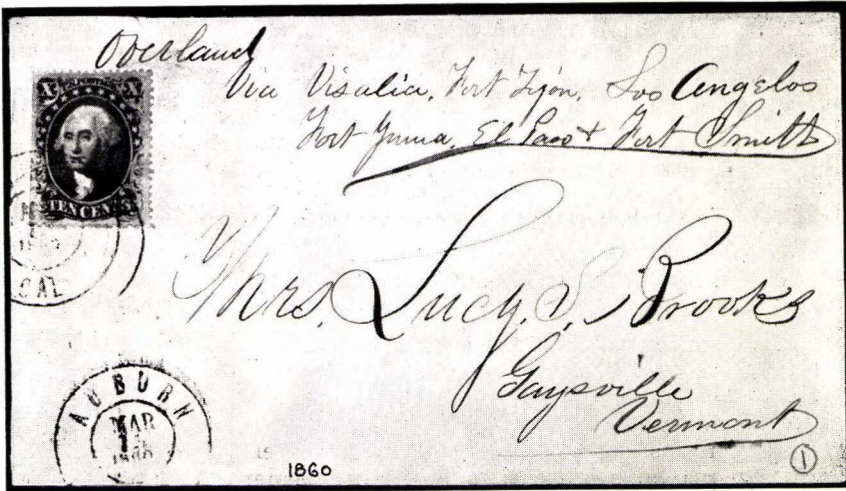 Overland
Via Visalia, Fort Tejón, Los Angelos
Fort Yuma, El Paso & Fort Smith
X X
TEN CENTS
CAL
Mrs. Lucy. S. Brooks
Gaysville
Vermont
AUBURN
MAR
1860
1